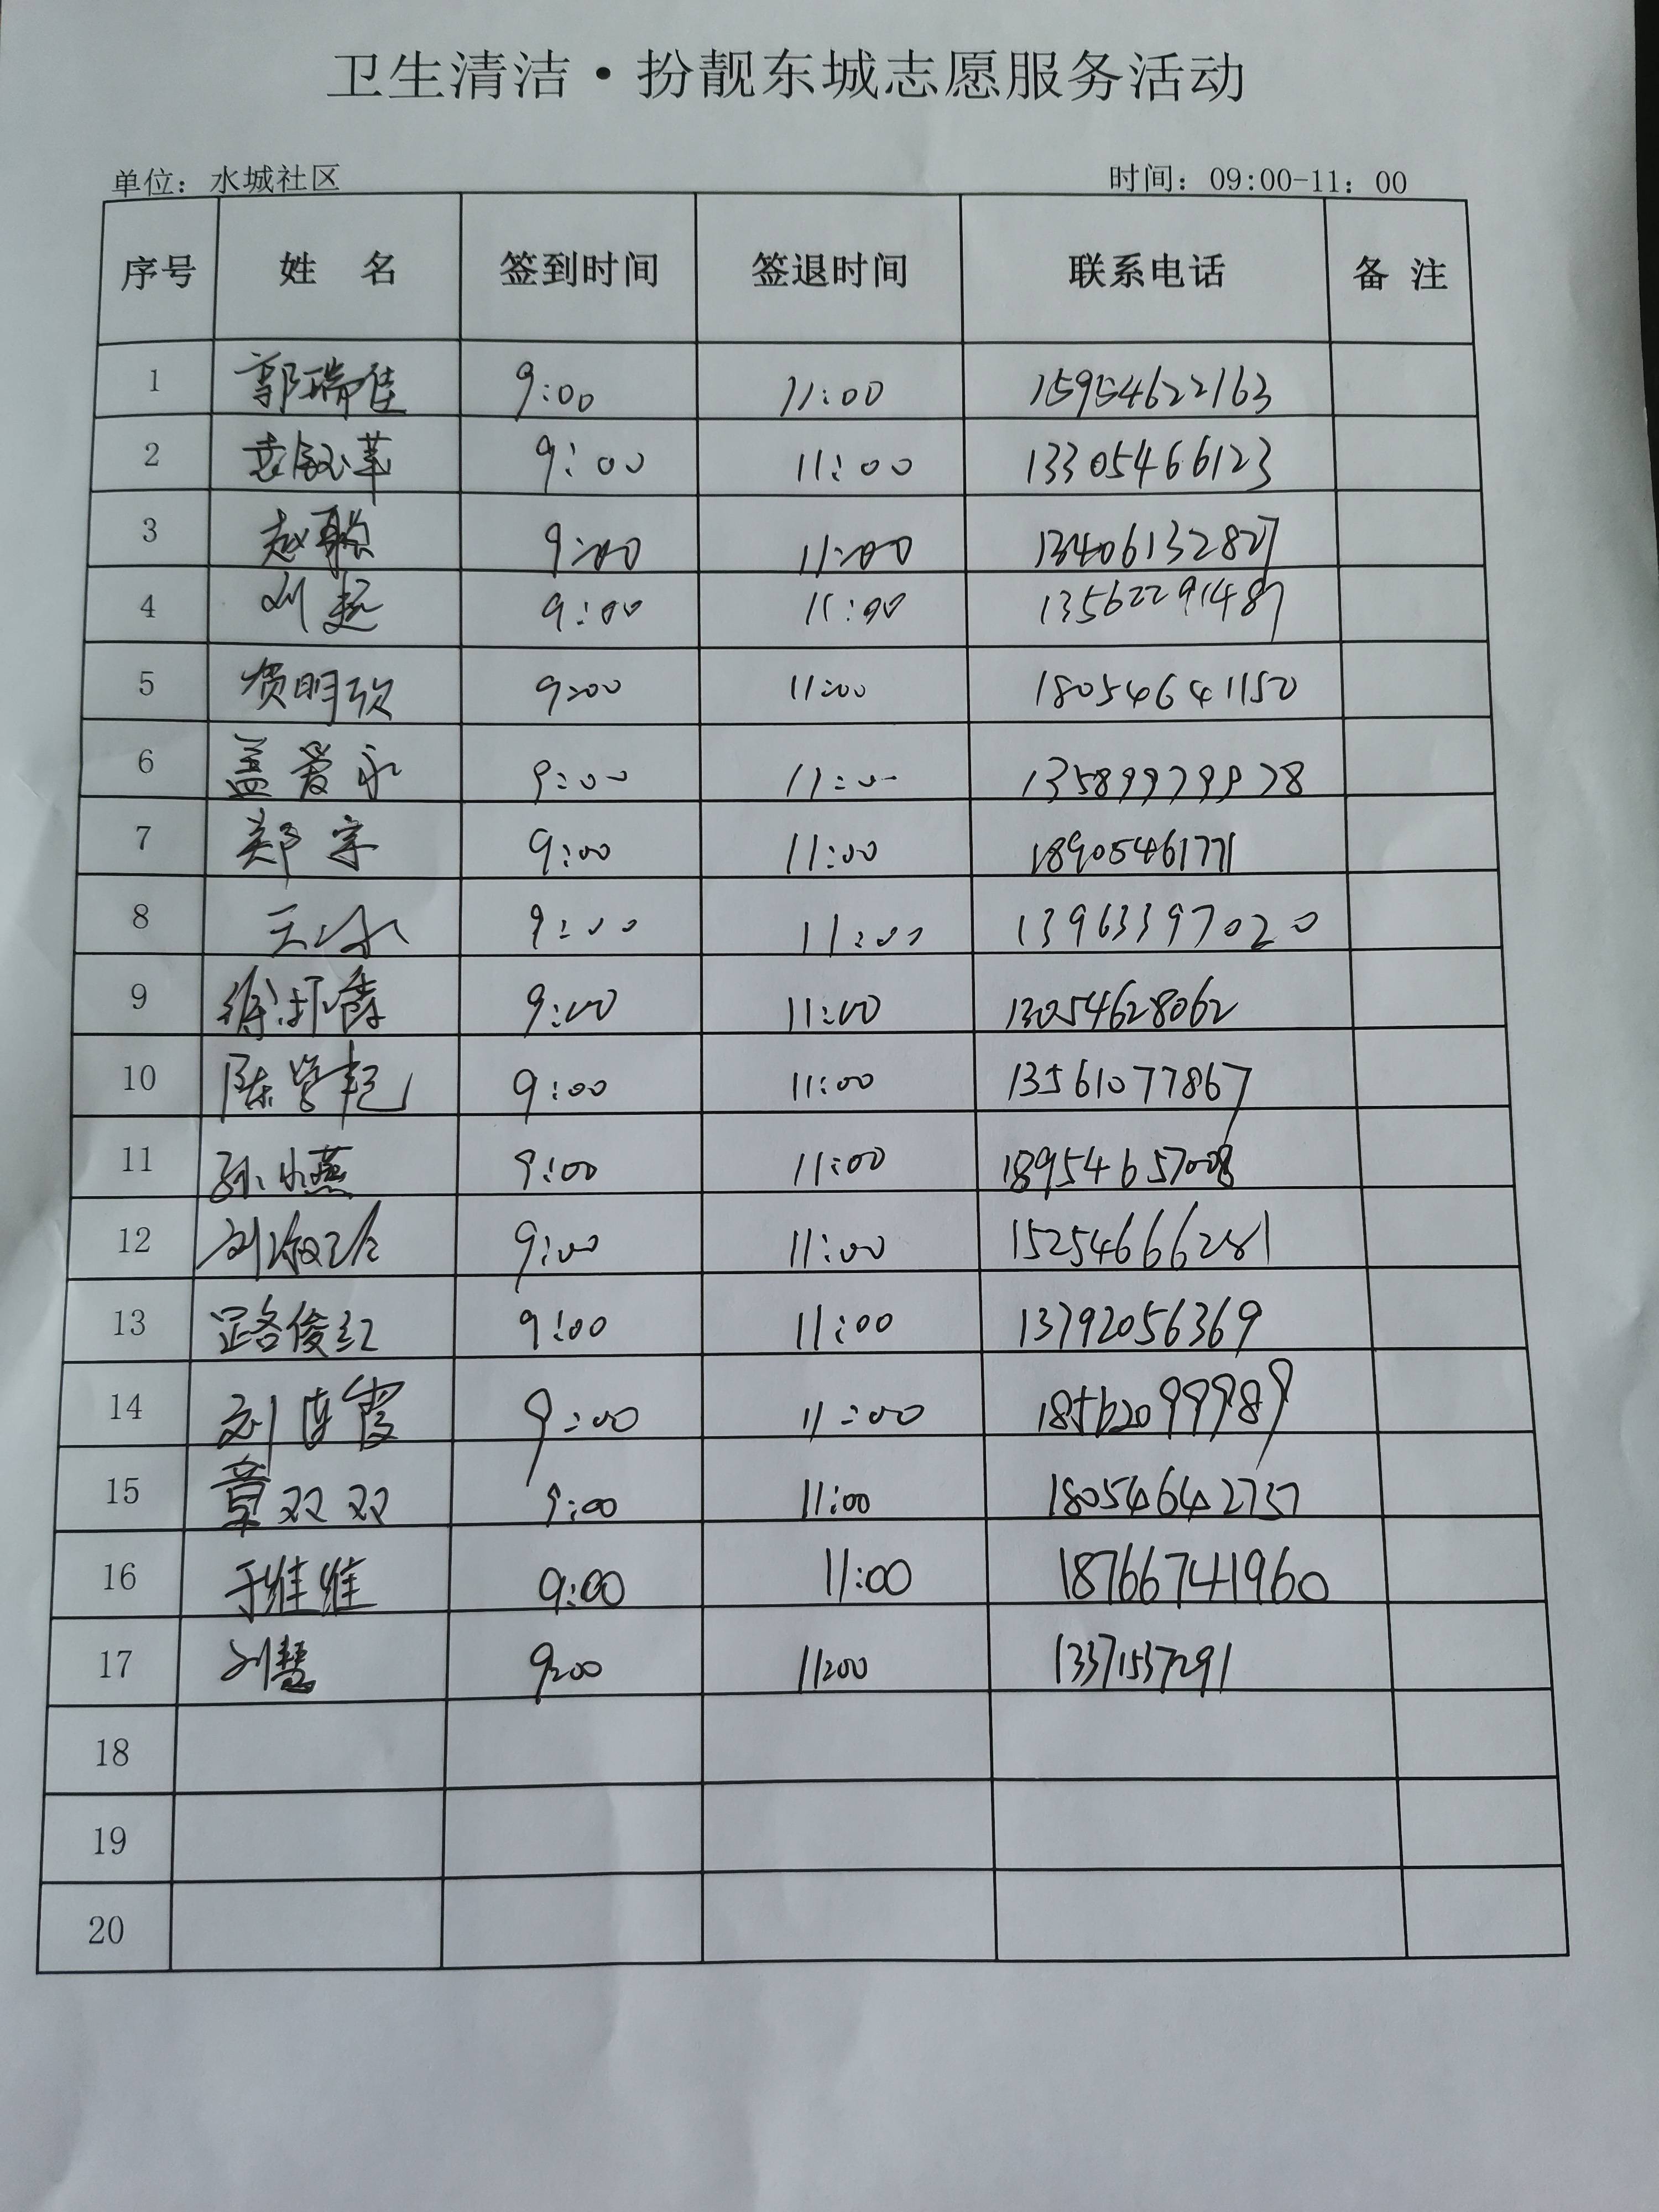 卫生清洁·扮靓东城志愿服务活动
单位：水城社区 时间：09:00-11：00
序号 姓 名 签到时间 签退时间 联系电话 备 注
1 郭瑞佳 9:00 11:00 15954622163
2 9:00 11:00 13305466123
3 赵聪 9:00 11:00 13406132827
4 刘超 9:00 11:00 13562291487
5 贾明欣 9:00 11:00 18054641150
6 盖爱永 9:00 11:00 13589979978
7 郑宇 9:00 11:00 18905461771
8 9:00 11:00 13963397020
9 9:00 11:00 13054628062
10 陈学艳 9:00 11:00 13561077867
11 孙小燕 9:00 11:00 18954657008
12 9:00 11:00 15254666281
13 路俊红 9:00 11:00 13792056369
14 刘海霞 9:00 11:00 18562099989
15 章双双 9:00 11:00 18054642757
16 于维维 9:00 11:00 18766741960
17 刘慧 9:00 11:00 13371537291
18
19
20